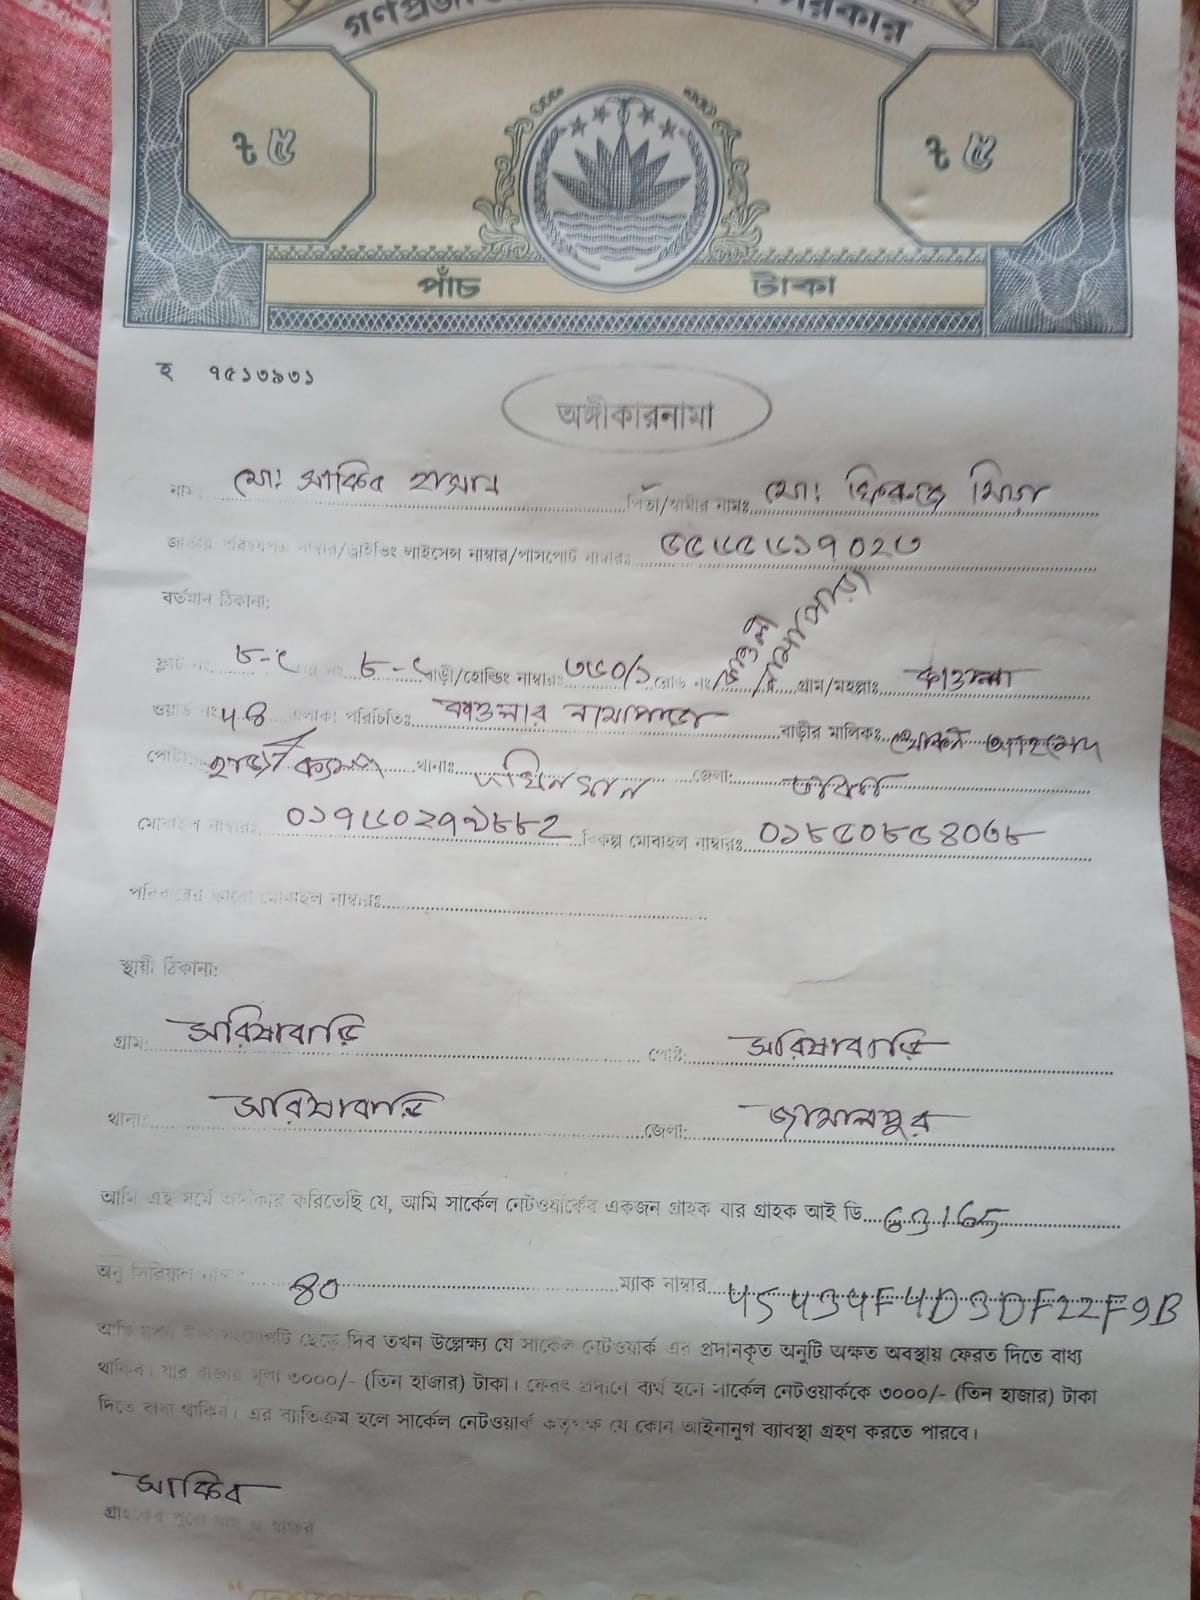 গণপ্রজা
সরকার
৳ ৫
৳ ৫
পাঁচ টাকা
হ ৭৫১৩৯৩১
অঙ্গীকারনামা
নাম: মো: সাকিব হাসান পিতা/স্বামীর নামঃ মো: ফিরুজ মিয়া
জাতীয় পরিচয়পত্র নাম্বার/ড্রাইভিং লাইসেন্স নাম্বার/পাসপোর্ট নাম্বারঃ
বর্তমান ঠিকানা:
ফ্লাট নং ৮-এ ৮-এ বাড়ী/হোল্ডিং নাম্বারঃ ৩৬০/১ রোড নং কাওলা নামাপাড়া গ্রাম/মহল্লাঃ কাওলা
ওয়ার্ড নং এলাকা পরিচিতিঃ কাওলার নামাপাড়া বাড়ীর মালিকঃ
পোষ্টঃ হাজী ক্যাম্প থানাঃ দক্ষিনখান জেলা: ঢাকা
মোবাইল নাম্বারঃ বিকল্প মোবাইল নাম্বারঃ
পরিবারের কারো মোবাইল নাম্বারঃ
স্থায়ী ঠিকানা:
গ্রাম: সরিষাবাড়ি পোষ্ট: সরিষাবাড়ি
থানাঃ সরিষাবাড়ি জেলা: জামালপুর
আমি এই মর্মে অঙ্গীকার করিতেছি যে, আমি সার্কেল নেটওয়ার্কের একজন গ্রাহক যার গ্রাহক আই ডি 63165
অনু সিরিয়াল নাম্বার ৪০ ম্যাক নাম্বার
আমি যখন উক্ত সংযোগটি ছেড়ে দিব তখন উল্লেক্ষ্য যে সার্কেল নেটওয়ার্ক এর প্রদানকৃত অনুটি অক্ষত অবস্থায় ফেরত দিতে বাধ্য
থাকিব। যার বাজার মূল্য ৩০০০/- (তিন হাজার) টাকা। ফেরৎ প্রদানে ব্যর্থ হলে সার্কেল নেটওয়ার্ককে ৩০০০/- (তিন হাজার) টাকা
দিতে বাধ্য থাকিব। এর ব্যাতিক্রম হলে সার্কেল নেটওয়ার্ক কর্তৃপক্ষ যে কোন আইনানুগ ব্যাবস্থা গ্রহণ করতে পারবে।
সাকিব
গ্রাহকের পুরো নাম ও স্বাক্ষর